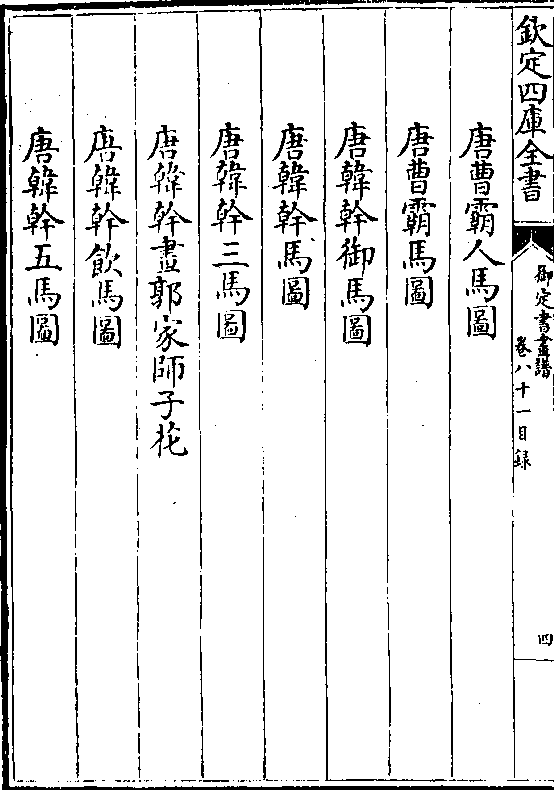 欽定四庫全書
御定書畫譜
卷八十一目録
四
唐曹霸人馬圖
唐曹霸馬圖
唐韓幹御馬圖
唐韓幹馬圖
唐韓幹三馬圖
唐韓幹畫郭家師子花
唐韓幹飲馬圖
唐韓幹五馬圖